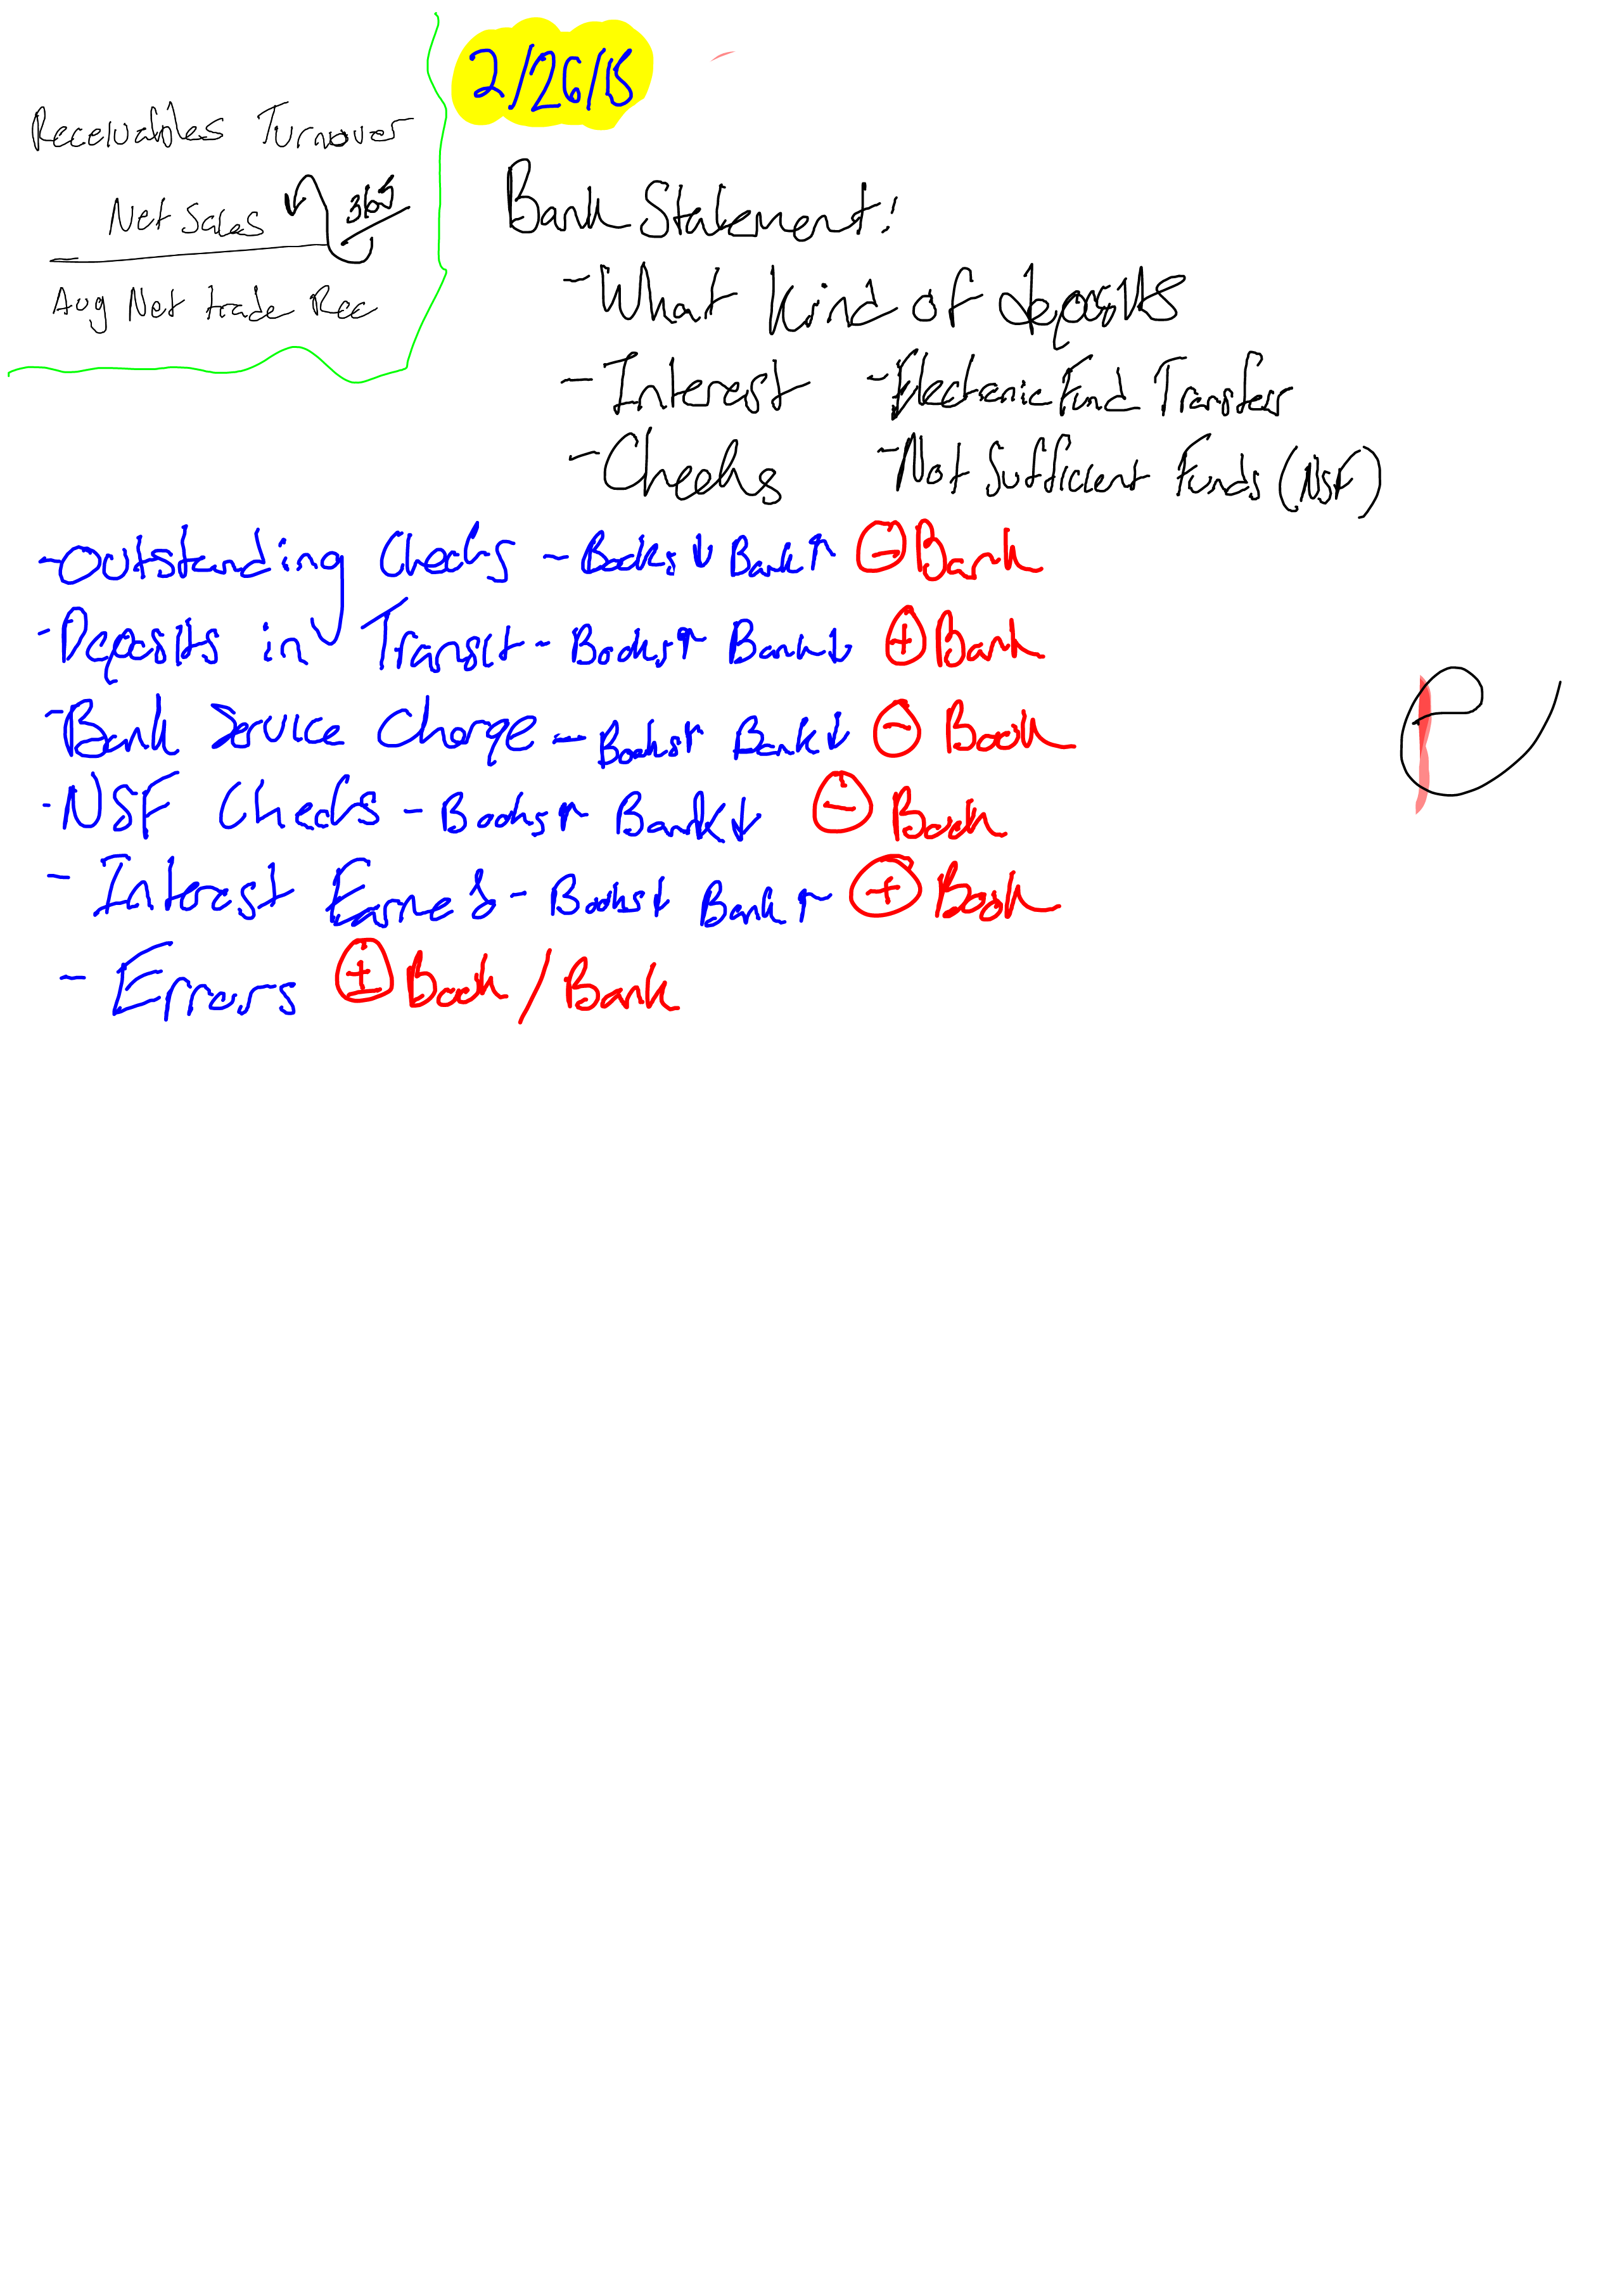 2/26/15
Receivables Turnover
Net Sales 365
Avg Net trade Rec
Bank Statement:
- What kind of deposits
- Interest - Electronic Fund Transfers
- Checks - Not Sufficient Funds (NSF)
- Outstanding Checks - Books ↓ Bank ↑ ⊖ Bank
- Deposits in Transit - Books ↑ Bank ↓ ⊕ Bank
- Bank Service Charge - Books ↑ Bank ↓ ⊖ Book
- NSF Checks - Books ↑ Bank ↓ ⊖ Book
- Interest Earned - Books ↓ Bank ↑ ⊕ Book
- Errors ± Book / Bank
e